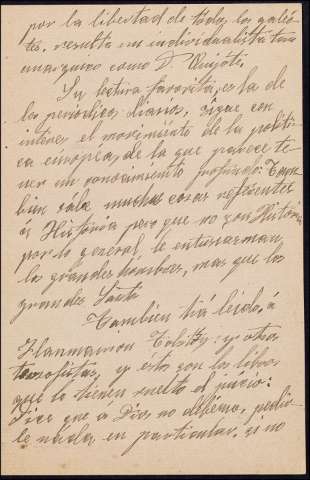 por la libertad de todos los galeo-
tes, resulta un individualista tan
anarquico como D. Quijote.
Su lectura favorita, es la de
los periódicos diarios, sigue con
interes el movimiento de la políti-
ca europea, de la que parece te-
ner un conocimiento profundo. Tam-
bien sabe muchas cosas referentes
a Historia pero que no son Historia
por lo general, le entusiasman
los grandes hombres, mas que los
grandes
Tambien há leido, á
Flanmarion Tolstoy y otros
teosofistas, y éstos son los libros
que le tienen vuelto el juicio:
Dice que a Dios no debemos pedir-
le nada en particular, si no